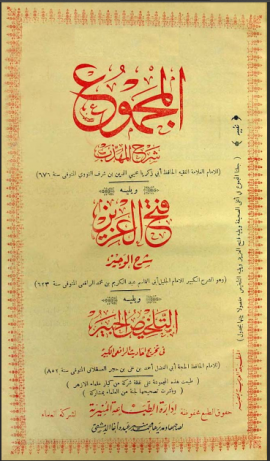 المجموع
شرح المهذب
للإمام العلامة الفقيه الحافظ أبي زكريا محيي الدين بن شرف النووي المتوفى سنة ٦٧٦
ويليه
فتح العزيز
شرح الوجيز
وهو الشرح الكبير للإمام الجليل أبي القاسم عبد الكريم بن محمد الرافعي المتوفى سنة ٦٢٣
ويليه
التلخيص الحبير
في تخريج أحاديث الرافعي الكبير
للإمام الحافظ الحجة أبي الفضل أحمد بن علي بن حجر العسقلاني المتوفى سنة ٨٥٢
طبعت هذه المجموعة على نفقة شركة من كبار علماء الأزهر
إدارة الطباعة المنيرية
حقوق الطبع محفوظة
لشركة العلماء
تنبيه